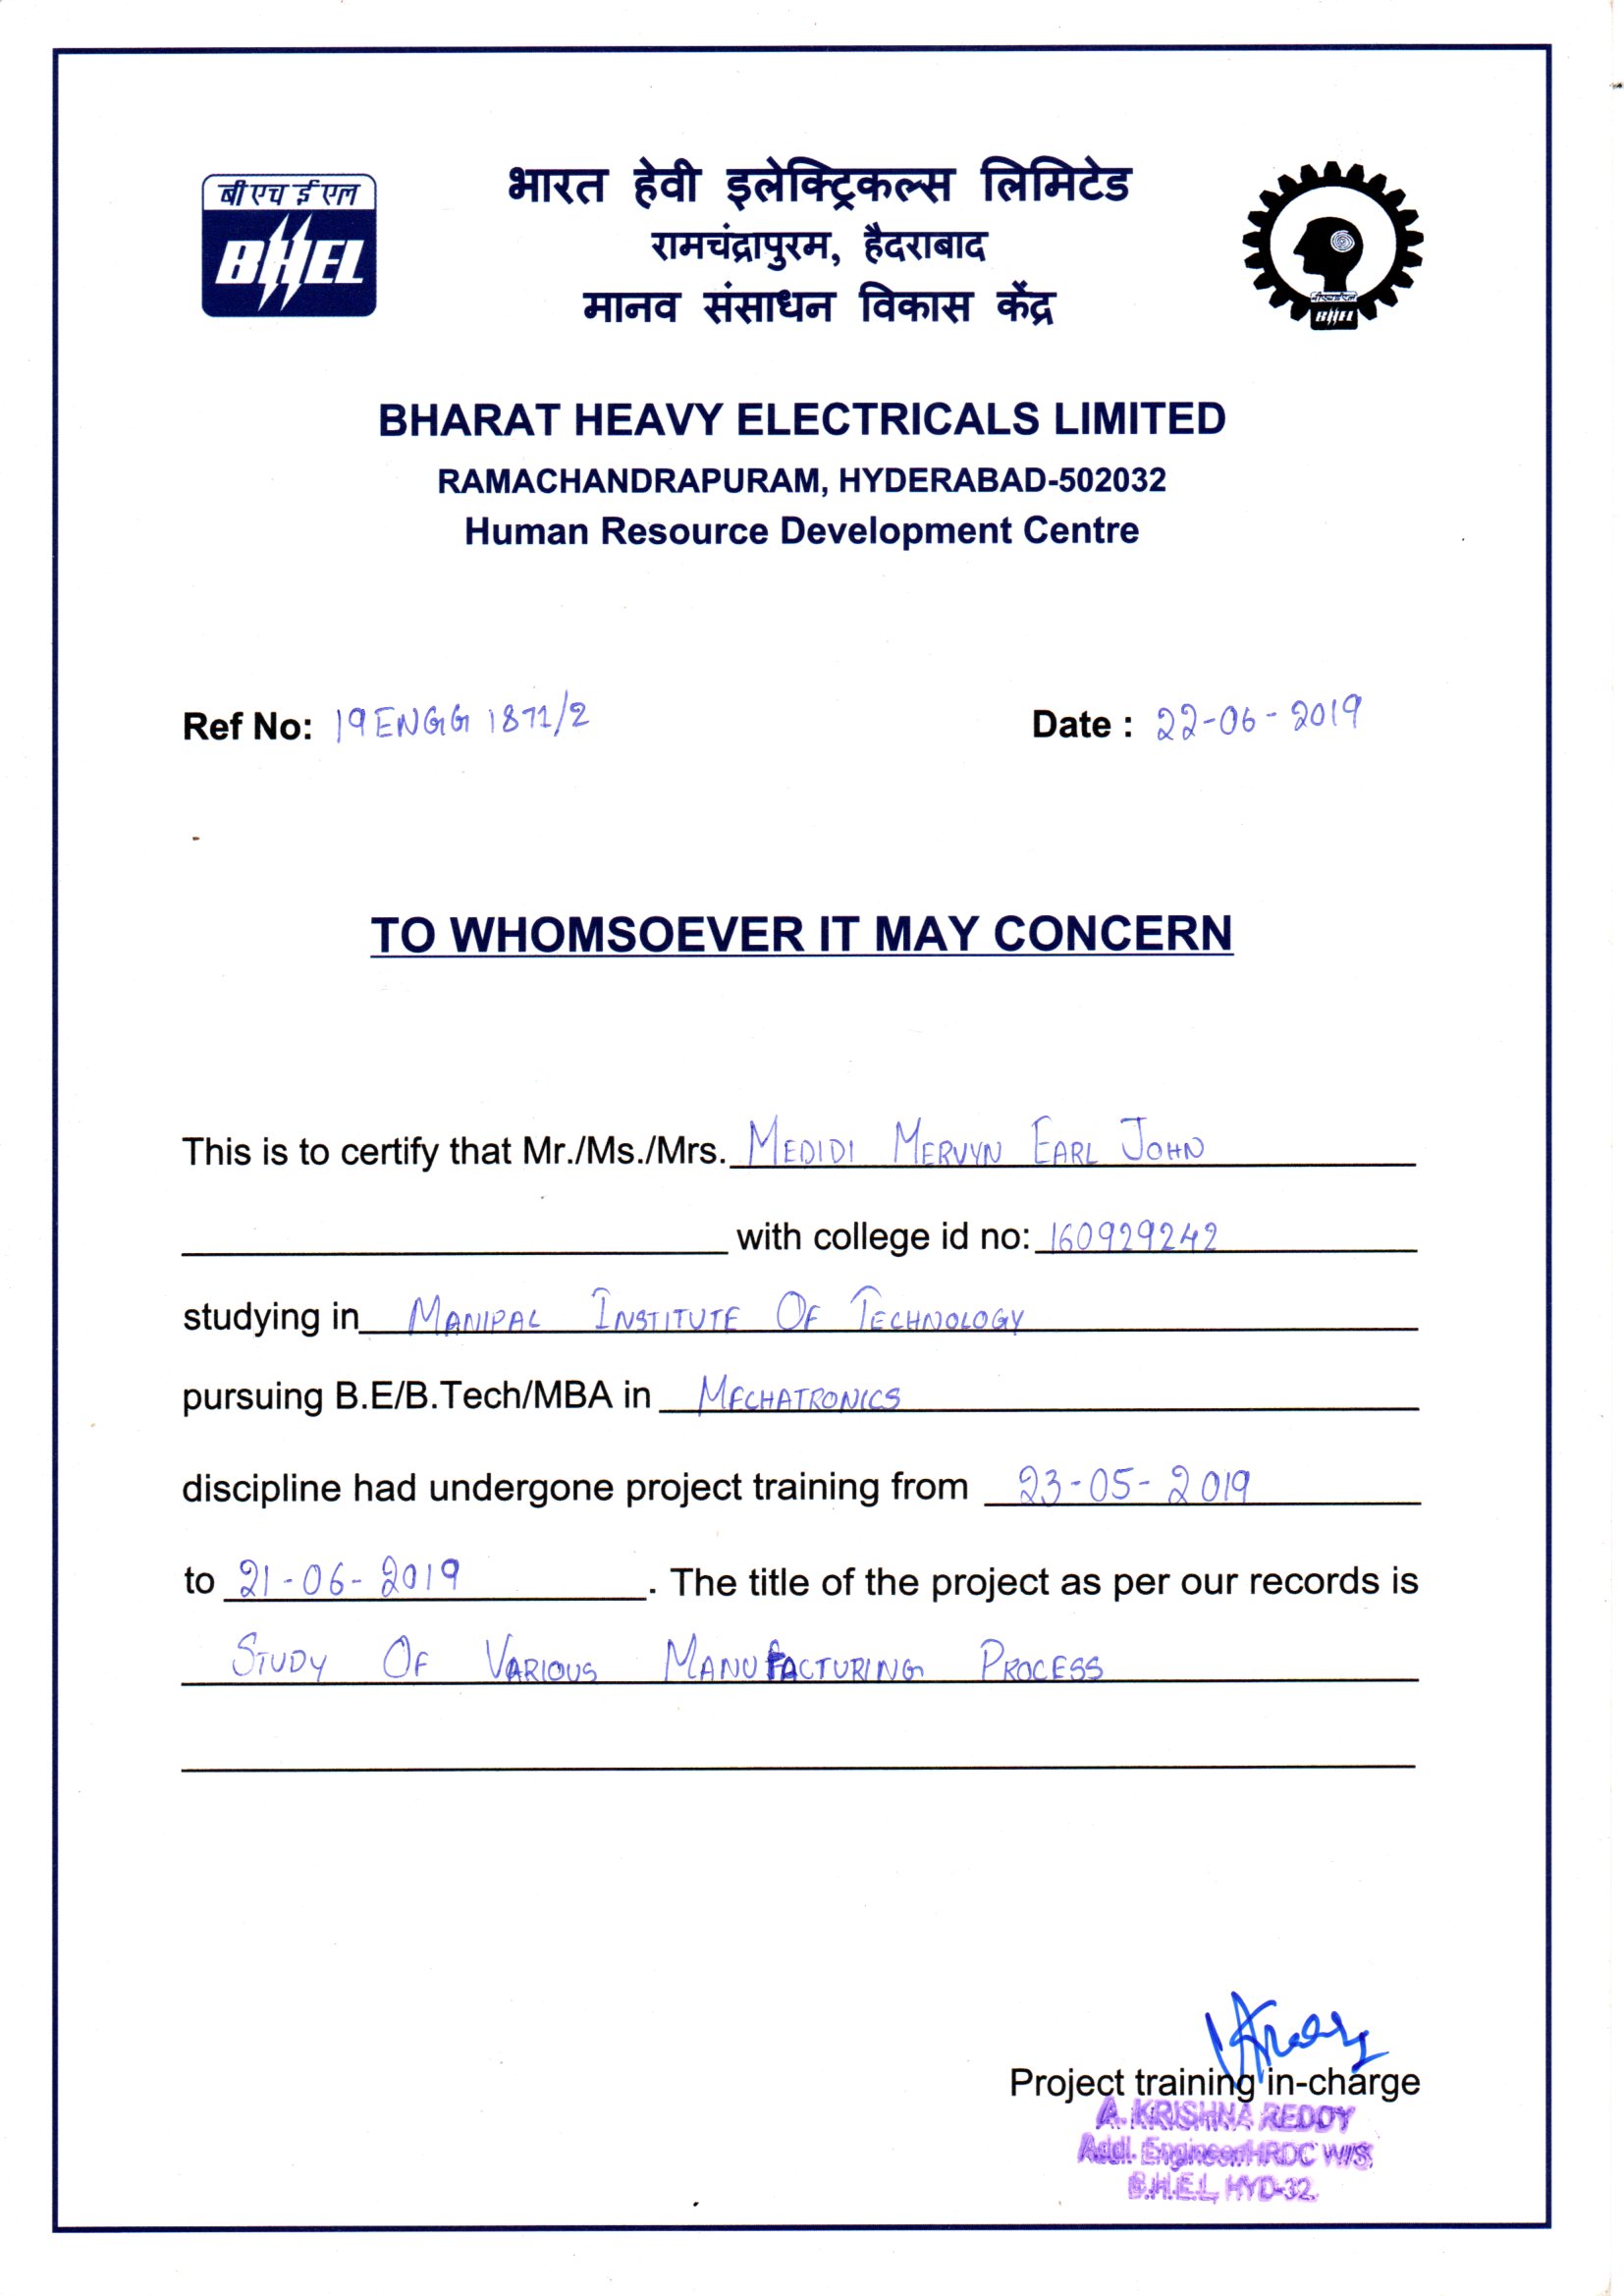 बी एच ई एल
BHEL
भारत हेवी इलेक्ट्रिकल्स लिमिटेड
रामचंद्रापुरम, हैदराबाद
मानव संसाधन विकास केंद्र
BHEL
BHARAT HEAVY ELECTRICALS LIMITED
RAMACHANDRAPURAM, HYDERABAD-502032
Human Resource Development Centre
Ref No: 19ENGG 1871/2
Date : 22-06-2019
TO WHOMSOEVER IT MAY CONCERN
This is to certify that Mr./Ms./Mrs. MEDIDI MERVYN EARL JOHN
with college id no: 160929242
studying in MANIPAL INSTITUTE OF TECHNOLOGY
pursuing B.E/B.Tech/MBA in MECHATRONICS
discipline had undergone project training from 23-05-2019
to 21-06-2019. The title of the project as per our records is
STUDY OF VARIOUS MANUFACTURING PROCESS
Project training in-charge
A. KRISHNA REDDY
Addl. Engineer/HRDC W/S
B.H.E.L, HYD-32.